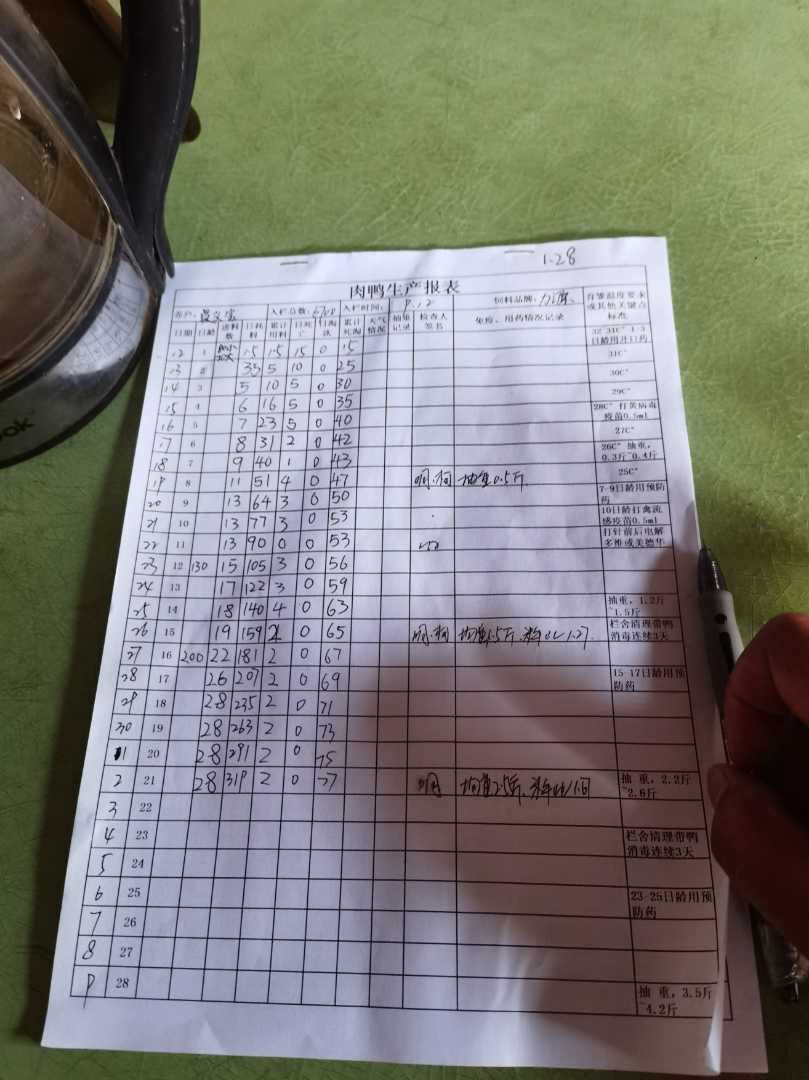 1.28
肉鸭生产报表
养户: 入栏总数: 6700 入栏时间: 8.12 饲料品牌: 育雏温度要求或其他关键点标准
日期 日龄 进料数 日耗料 累计用料 日死亡 日淘汰 累计死淘 天气情况 抽集记录 检查人签名 免疫、用药情况记录
12 1 1.5 1.5 15 0 15 32-31C° 1-3日龄用开口药
13 2 3.5 5 10 0 25 31C°
14 3 5 10 5 0 30 30C°
15 4 6 16 5 0 35 29C°
16 5 7 23 5 0 40 28C° 打黄病毒疫苗0.5ml
17 6 8 31 2 0 42 27C°
18 7 9 40 1 0 43 26C° 抽重,0.3斤~0.4斤
19 8 11 51 4 0 47 抽重0.5斤 25C°
20 9 13 64 3 0 50 7-9日龄用预防药
21 10 13 77 3 0 53 10日龄打禽流感疫苗0.5ml
22 11 13 90 0 0 53 打针前后电解多维或美德华
23 12 130 15 105 3 0 56
24 13 17 122 3 0 59
25 14 18 140 4 0 63 抽重,1.2斤~1.5斤
26 15 19 159 2 0 65 均重1.5斤 1.27 栏舍清理带鸭消毒连续3天
27 16 200 22 181 2 0 67
28 17 26 207 2 0 69 15-17日龄用预防药
29 18 28 235 2 0 71
30 19 28 263 2 0 73
1 20 28 291 2 0 75
2 21 28 319 2 0 77 均重2.5斤 抽重,2.2斤~2.6斤
3 22
4 23 栏舍清理带鸭消毒连续3天
5 24
6 25 23-25日龄用预防药
7 26
8 27
9 28 抽重,3.5斤~4.2斤
ok